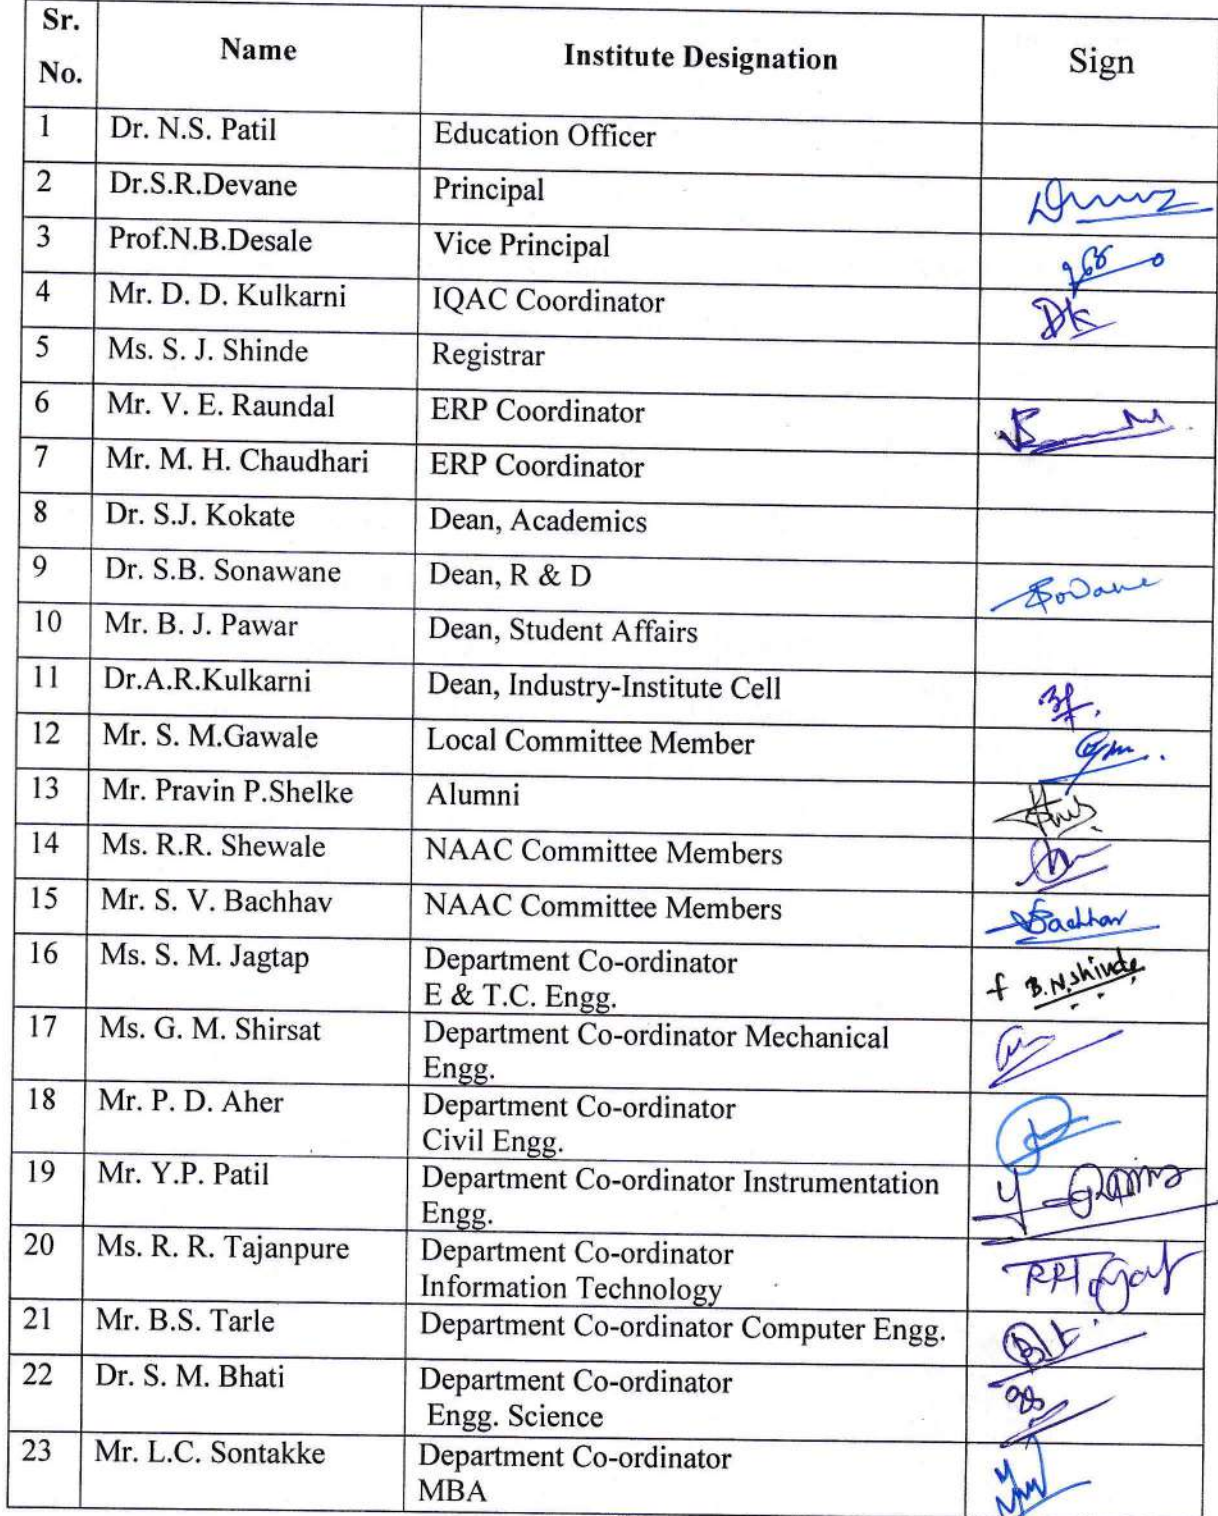 Sr.
No.
Name
Institute Designation
Sign
1 Dr. N.S. Patil Education Officer
2 Dr.S.R.Devane Principal
3 Prof.N.B.Desale Vice Principal
4 Mr. D. D. Kulkarni IQAC Coordinator DK
5 Ms. S. J. Shinde Registrar
6 Mr. V. E. Raundal ERP Coordinator
7 Mr. M. H. Chaudhari ERP Coordinator
8 Dr. S.J. Kokate Dean, Academics
9 Dr. S.B. Sonawane Dean, R & D
10 Mr. B. J. Pawar Dean, Student Affairs
11 Dr.A.R.Kulkarni Dean, Industry-Institute Cell
12 Mr. S. M.Gawale Local Committee Member
13 Mr. Pravin P.Shelke Alumni
14 Ms. R.R. Shewale NAAC Committee Members
15 Mr. S. V. Bachhav NAAC Committee Members Bachhav
16 Ms. S. M. Jagtap Department Co-ordinator
E & T.C. Engg. B.N.Shinde
17 Ms. G. M. Shirsat Department Co-ordinator Mechanical
Engg.
18 Mr. P. D. Aher Department Co-ordinator
Civil Engg.
19 Mr. Y.P. Patil Department Co-ordinator Instrumentation
Engg.
20 Ms. R. R. Tajanpure Department Co-ordinator
Information Technology
21 Mr. B.S. Tarle Department Co-ordinator Computer Engg.
22 Dr. S. M. Bhati Department Co-ordinator
Engg. Science
23 Mr. L.C. Sontakke Department Co-ordinator
MBA